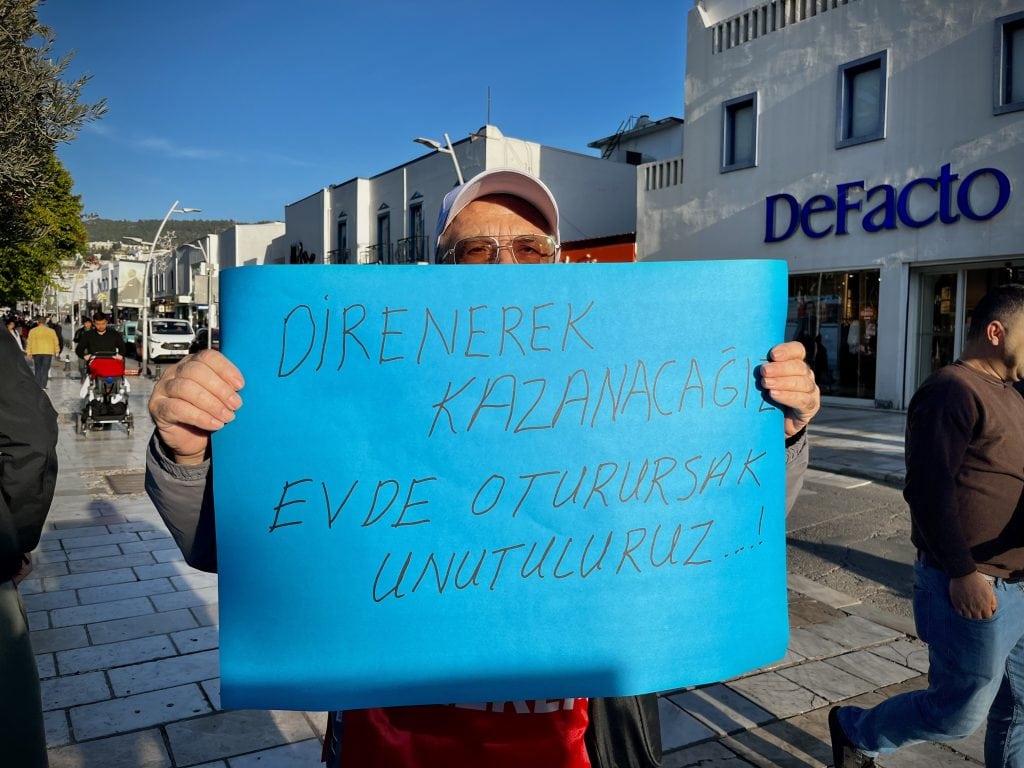 DeFacto
DİRENEREK
KAZANACAĞIZ
EVDE OTURURSAK
UNUTULURUZ....!